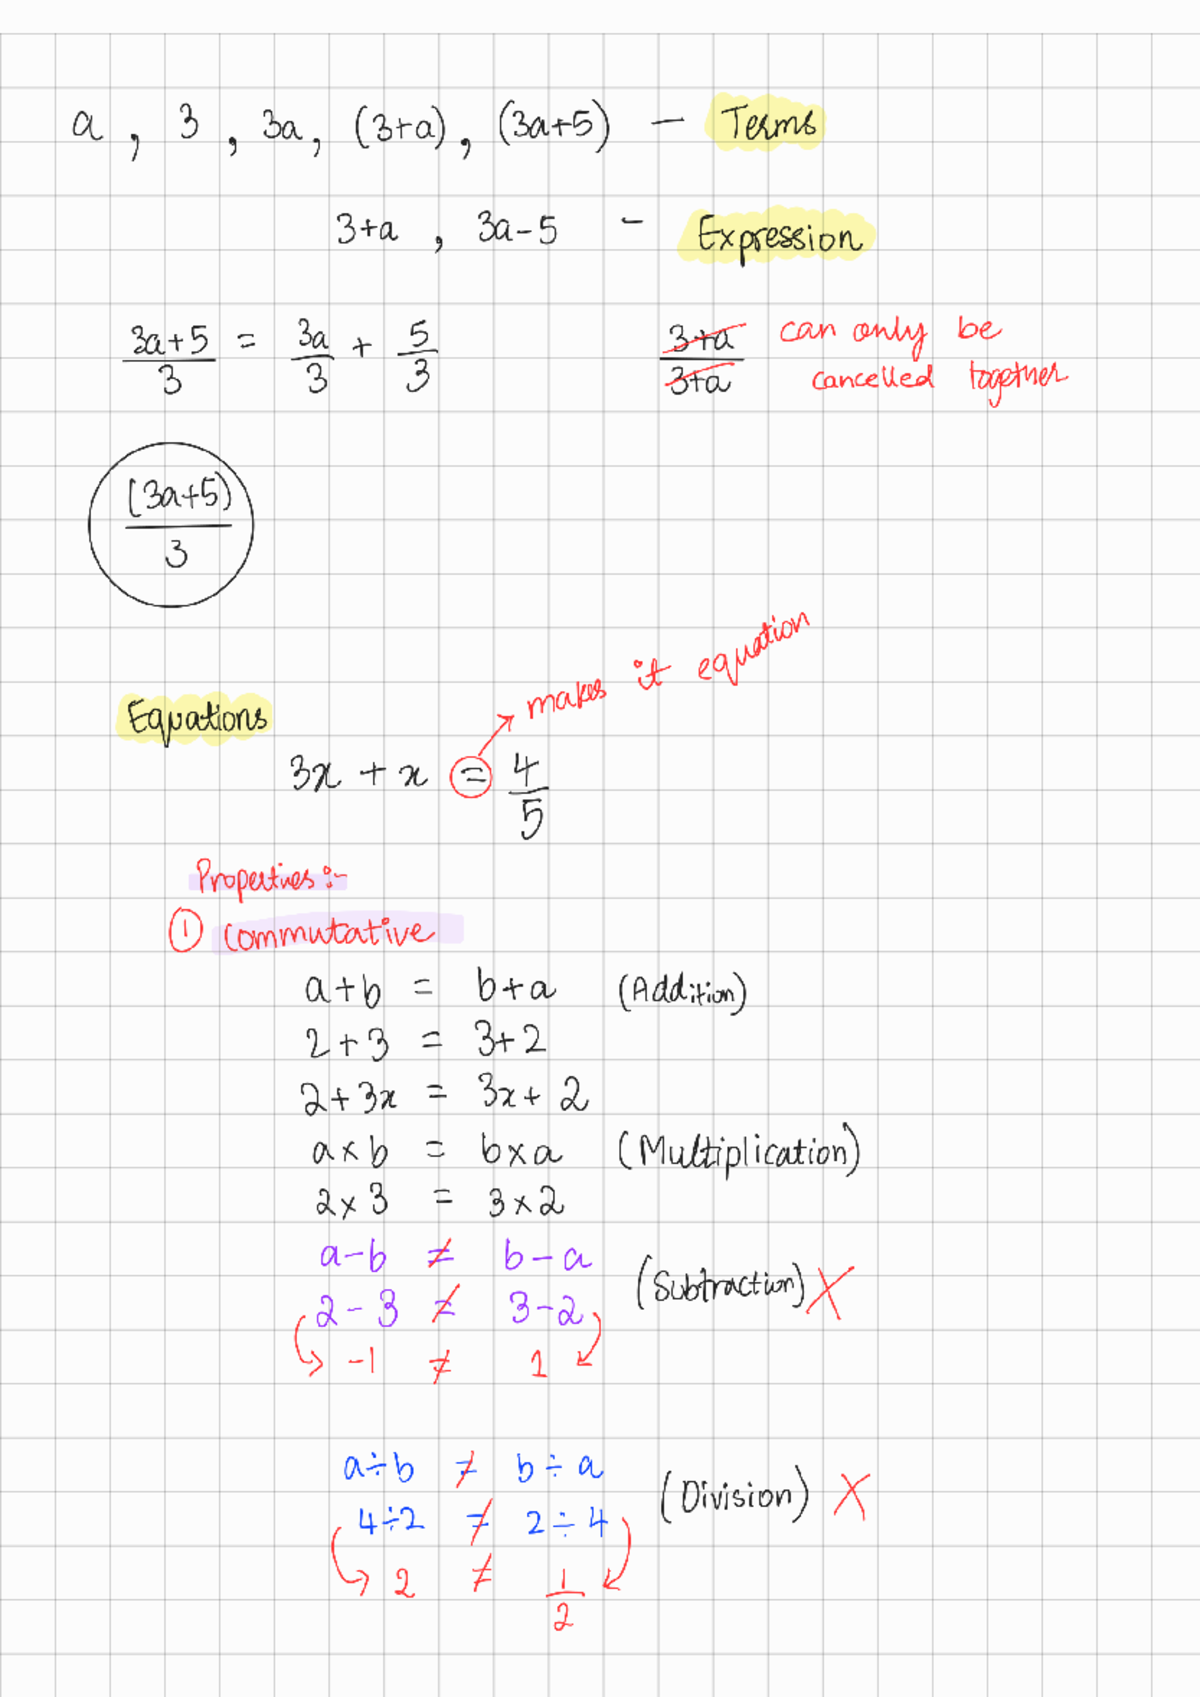 a , 3 , 3a, (3+a), (3a+5) – Terms
3+a , 3a-5 – Expression
(3a+5)/3 = 3a/3 + 5/3
(3+a)/(3+a) can only be
cancelled together
(3a+5)/3
makes it equation
Equations
3x + x = 4/5
Properties:-
① Commutative
a+b = b+a (Addition)
2+3 = 3+2
2+3x = 3x+2
a×b = b×a (Multiplication)
2×3 = 3×2
a-b ≠ b-a
(Subtraction) X
2-3 ≠ 3-2
-1 ≠ 1
a÷b ≠ b÷a
(Division) X
4÷2 ≠ 2÷4
2 ≠ 1/2